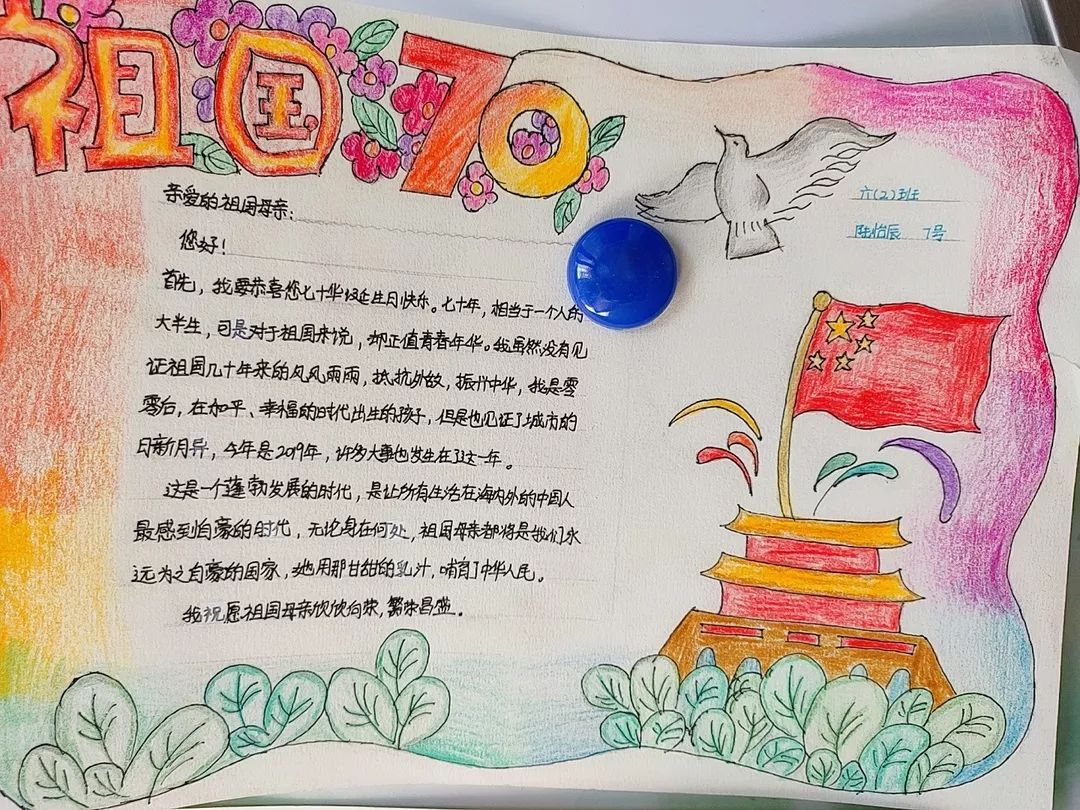 祖国70
六(2)班
陆怡辰 7号
亲爱的祖国母亲:
您好!
首先,我要恭喜您七十华诞生日快乐。七十年,相当于一个人的
大半生,可是对于祖国来说,却正值青春年华。我虽然没有见
证祖国几十年来的风风雨雨,抵抗外敌,振兴中华,我是零
零后,在和平、幸福的时代出生的孩子,但是也见证了城市的
日新月异,今年是2019年,许多大事也发生在了这一年。
这是一个蓬勃发展的时代,是让所有生活在海内外的中国人
最感到自豪的时代,无论身在何处,祖国母亲都将是我们永
远为之自豪的国家,她用那甘甜的乳汁,哺育了中华人民。
我祝愿祖国母亲欣欣向荣,繁荣昌盛。